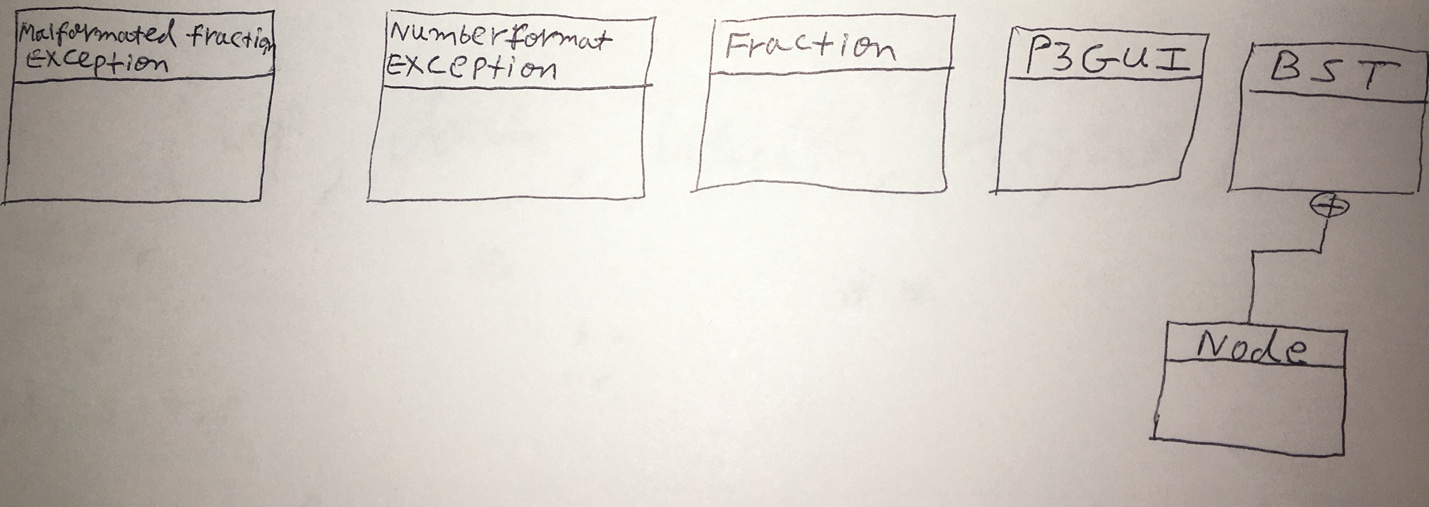 Malformated fraction
EXCEption
Numberformat
EXCEption
Fraction
P3GUI
BST
Node